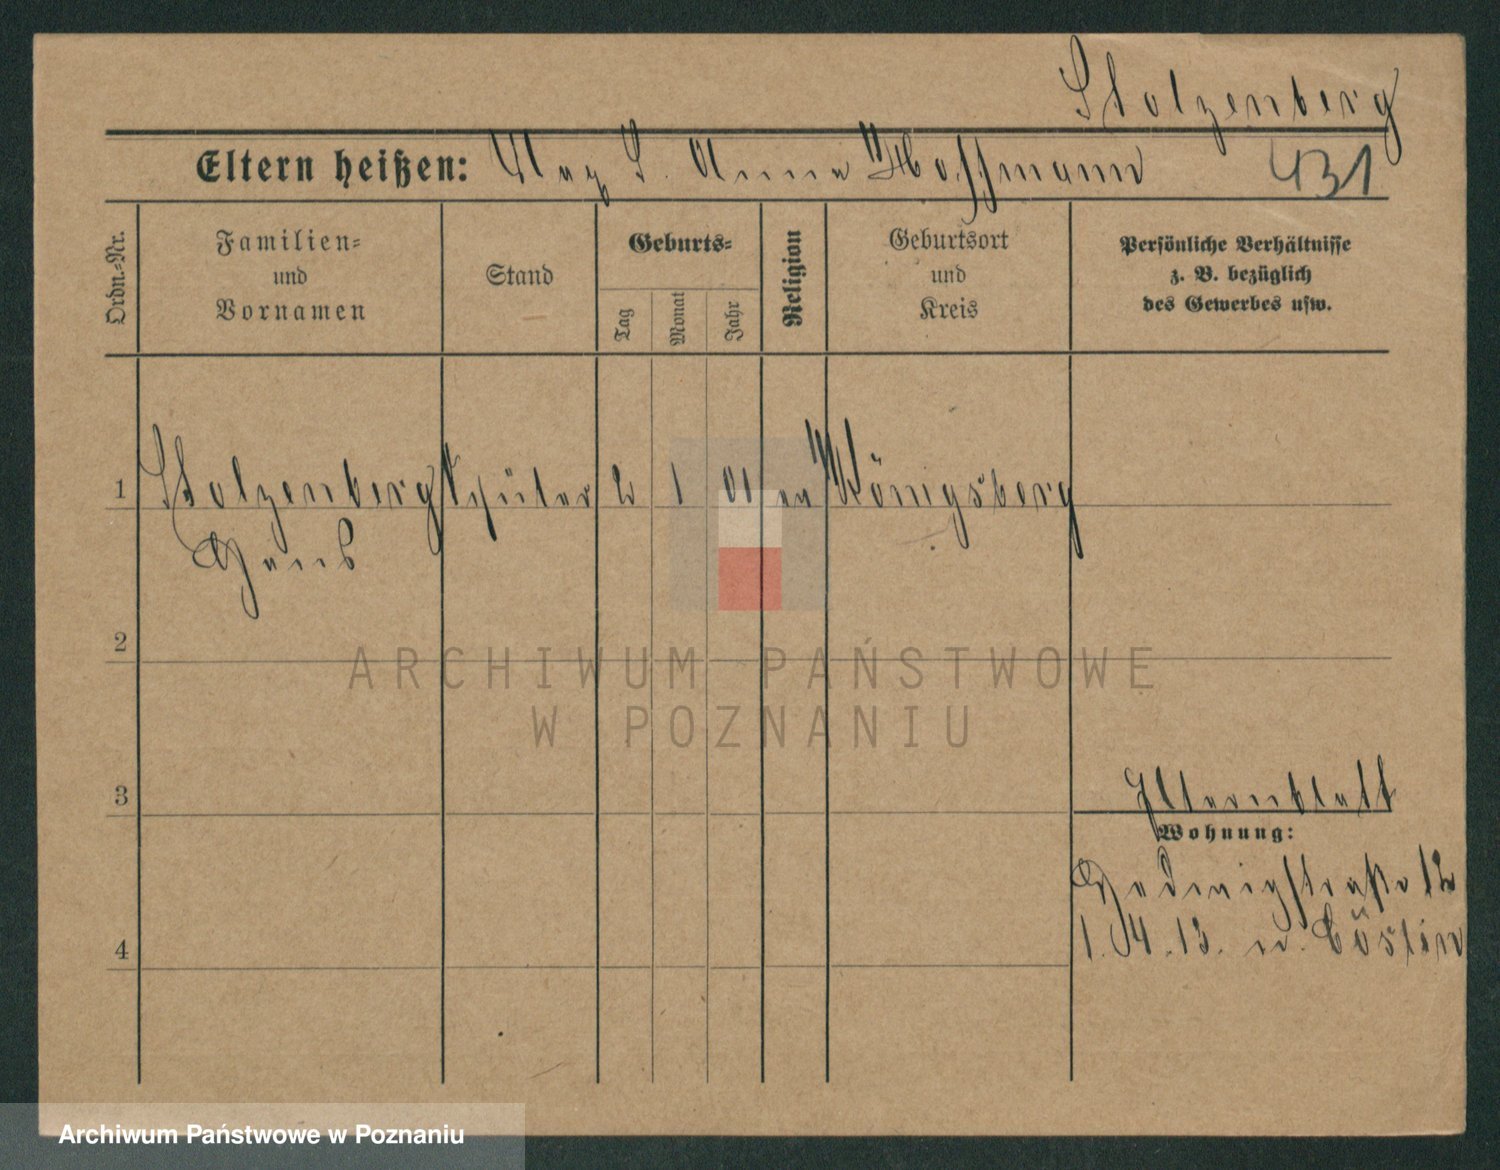 Stolzenberg
Eltern heißen: Max S. Anna Hoffmann 431
Ordn.=Nr.
Familien=
und
Vornamen
Stand
Geburts=
Tag
Monat
Jahr
Religion
Geburtsort
und
Kreis
Persönliche Verhältnisse
z. B. bezüglich
des Gewerbes usw.
1 Stolzenberg Schüler 2 1 01 ev Königsberg
Hans
2
3
Elternblatt
Wohnung:
Hedwigstraße 12
1. 4. 13. n. Cöslin
4
ARCHIWUM PAŃSTWOWE
W POZNANIU
Archiwum Państwowe w Poznaniu